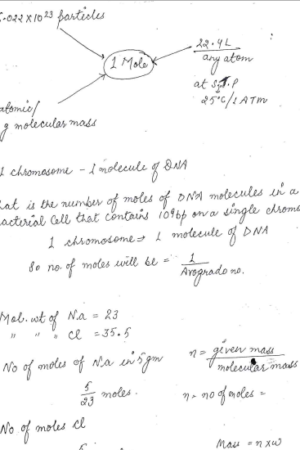 6.022 X 10 23 particles
1 Mole
22.4L
any atom
at S.T.P
25°C/1 ATM
atomic/
g molecular mass
1 chromosome - 1 molecule of DNA
hat is the number of moles of DNA molecules in a
acterial Cell that contains 10 bp on a single chromo
1 chromosome → 1 molecule of DNA
So no. of moles will be = 1
Avogrado no.
Mol. wt of Na = 23
" " " Cl = 35.5
No of moles of Na in 5 gm
n = given mass
molecular mass
5
23 moles.
n = no of moles =
No of moles Cl
Mass = n x w